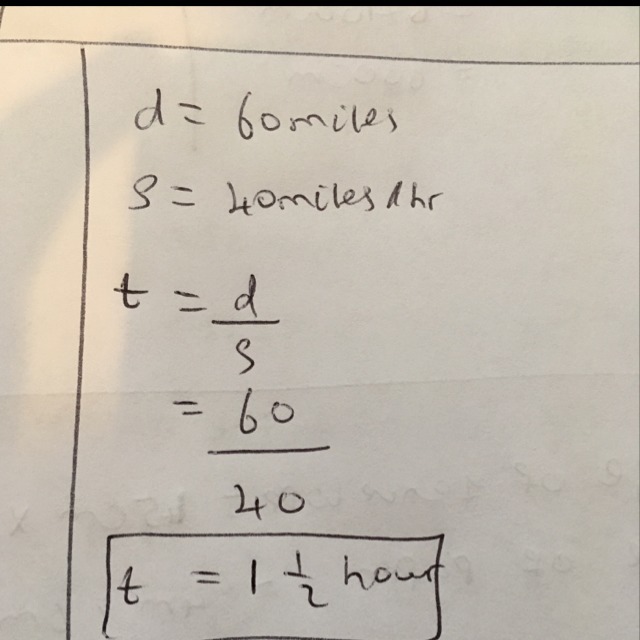 d = 60miles
S = 40miles/hr
t = d
S
= 60
40
t = 1 1/2 hour